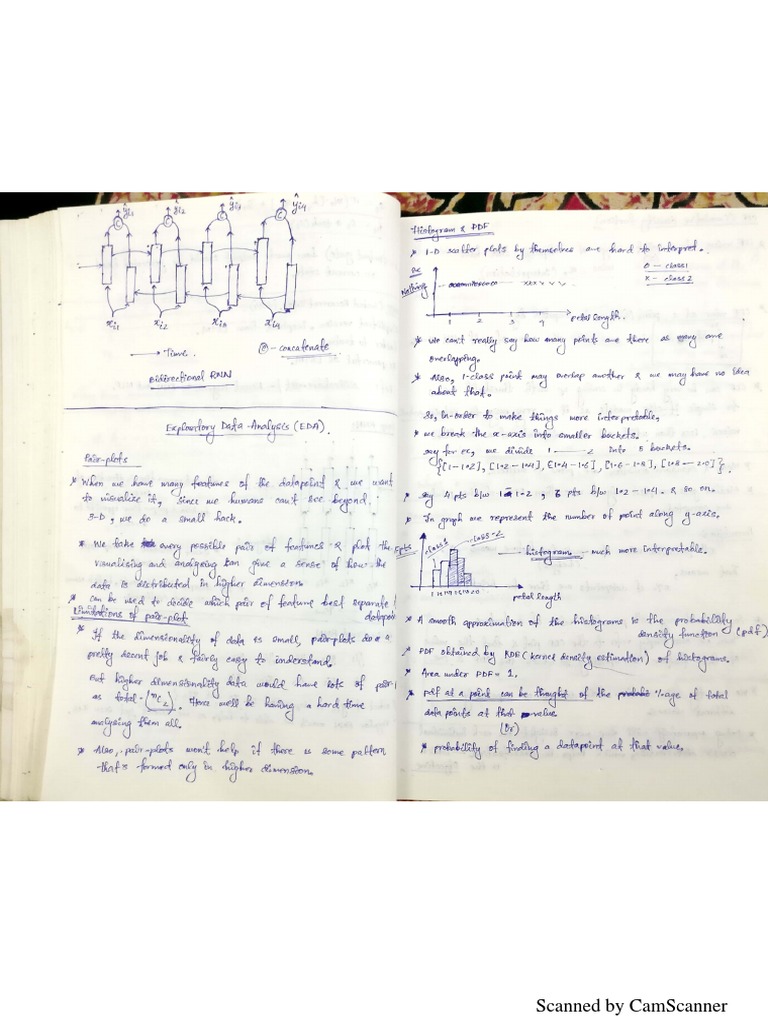 ŷi1 ŷi2 ŷi3 ŷi4
C C C C
xi1 xi2 xi3 xi4
→ Time.
© - concatenate
Bidirectional RNN
Exploratory Data Analysis (EDA).
Pair-plots
* When we have many features of the datapoint & we want
to visualize it, since we humans can't see beyond
3-D, we do a small hack.
* We take every possible pair of features & plot the
visualising and analysing can give a sense of how the
data is distributed in higher dimension.
* Can be used to decide which pair of feature best separate
datapoi
Limitations of pair-plot
* If the dimensionality of data is small, pair-plots do a
pretty descent job & fairly easy to understand.
But higher dimensionality data would have lots of pair
as total - (nC2). Hence we'll be having a hard time
analysing them all.
* Also, pair-plots won't help if there is some pattern
that's formed only in higher dimension.
Histogram & PDF
* 1-D scatter plots by themselves are hard to interpret.
O - class 1
X - class 2
Nothing
1 2 3 4 petal length.
* We can't really say how many points are there as many are
overlapping.
* Also, 1-class point may overlap another & we may have no idea
about that.
So, in-order to make things more interpretable,
* we break the x-axis into smaller buckets.
say for ex, we divide 1 — 2 into 5 buckets.
{[1-1.2], [1.2-1.4], [1.4-1.6], [1.6-1.8], [1.8-2.0]}.
* Say 4 pts b/w 1-1.2, 6 pts b/w 1.2-1.4. & so on.
* In graph we represent the number of point along y-axis.
pts
class 1
class-2
histogram - much more interpretable.
petal length
* A smooth approximation of the histograms is the probability
density function (pdf)
* PDF obtained by KDE (kernel density estimation) of histograms.
* Area under PDF = 1.
* pdf at a point can be thought of the %age of total
data points at that value
(Or)
* probability of finding a datapoint at that value.
Scanned by CamScanner